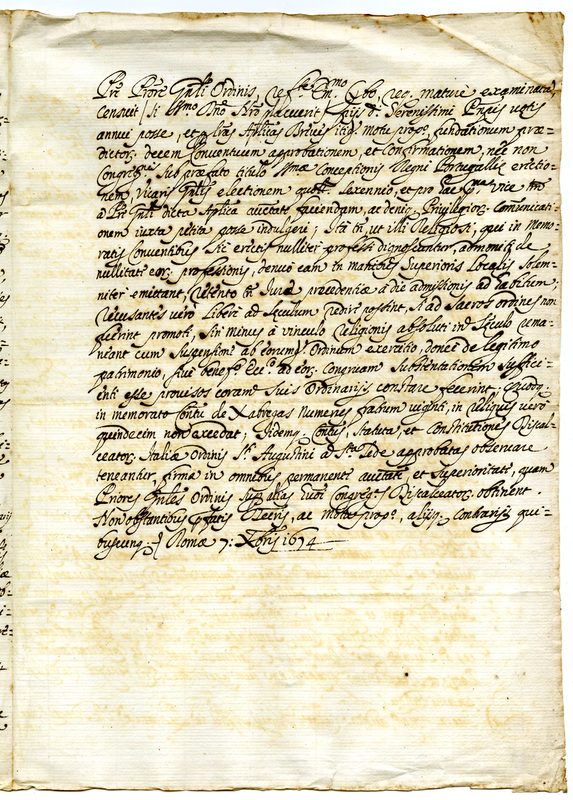 Pre Priore Gnli Ordinis, refte Emo Cybo, req. mature examinata,
censuit / si SSmo Dno Nro placuerit / huijs d. Serenissimi Pnpis votis
annui posse, et p lras Aplicas Brevis itidē motu prop. fundationum præ-
dictor. decem Conventuum approbationem, et Confirmationem, nec non
Congrñis sub præfato titulo Immæ Conceptionis Regni Portugalliæ erectio-
nem, Vicarij Gnlis electionem quolt. sexennio, et pro hac pma vice tm
à Pre Gnli dicta Aplica auctate faciendam, ac deniq. Privilegior. comunicati-
onem iuxta petita posse indulgeri; Ita tñ, ut illi Religiosi, qui in memo-
ratis Conventibus sic erectis nulliter professi dignoscantur, admoniti de
nullitate eor. professionis, denuo eam in manibus Superioris Localis solem-
niter emittant, retento tñ Iure precedentiæ à die admissionis ad habitum;
Recusantes vero Liberè ad seculum redire possint, si ad sacros ordines non
fuerint promoti, sin minus à vinculo Religionis absoluti in Seculo rema-
neant cum suspensione ab eorum Ordinum exercitio, donec de legitimo
patrimonio, sive benef. Ecc. ad eor. congruam substentationem suffici-
enti esse provisos coram suis Ordinarijs constare fecerint. Quodq.
in memorato Contu de Xabregas numerus fratrum viginti, in reliquis vero
quindecim non excedat; Ijdemq. Contus, statuta, et constitutiones Discal-
ceator. Italiæ Ordinis Sti Augustini ad Sta Sede approbatas observare
teneantur, firma in omnibus permanente auctate, et superioritate, quam
Priores Gnles Ordinis super alias huiõi Congreg. Discalceator. obtinent.
Non obstantibus pfatis Decris, ac Motu prop., alijsq. contrarijs qui-
buscunq. Romæ 7: Xbris 1674